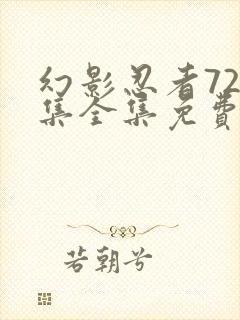 幻影忍者72
集全集免费
若朝兮